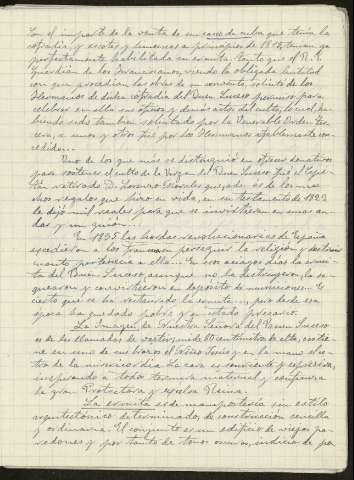 Con el importe de la venta de un caso de cuba que tenía la
cofradía, y escotes y limosnas a principios de 1812, tenían ya
perfectamente habilitada su ermita: tanto que el R. P.
Guardián de los Franciscanos, viendo la obligada lentitud
con que procedían las obras de su convento, solicitó de los
Hermanos de dicha cofradía del Buen Suceso permiso para
celebrar en ella sus oficios y demás actos del culto, lo cual ha-
biendo sido también solicitado por la Venerable Orden ter-
cera, a unos y otros fué por los Hermanos afablemente con-
cedido...
Uno de los que más se distinguió en ofrecer donativos
para sostener el culto de la Virgen del Buen Suceso fué el Capi-
tán retirado D. Lorenzo Morales quejado es de los mu-
chos regalos que hizo en vida, en su testamento de 1823
le dejó mil reales para que se invirtiesen en unas an-
das y un guión.
En 1835 las hordas revolucionarias de España
escedieron a los franceses en perseguir la religión y destruir
cuanto pertenecía a ella... En esos aciagos días la ermi-
ta del Buen Suceso, aunque no la destruyeron, la sa-
quearon y convirtieron en depósito de municiones... Es
cierto que se ha restaurado la ermita..., pero desde esa
época ha quedado pobre y en estado precario.
La Imagen de Nuestra Señora del Buen Suceso
es de las llamadas de vestir, mide 60 centímetros de alto, contie-
ne en uno de sus brazos el Niño Jesús y en la mano el ce-
tro de la misericordia. La cara es sonriente y expresiva,
inspirando a todos ternura maternal y confianza
la gran Protectora y escelsa Reina.
La ermita es de mampostería sin estilo
arquitectónico determinado, de construcción sencilla
y ordinaria. El conjunto es un edificio de viejos pa-
redones y por tanto de tonos oscuros, indicio de pa